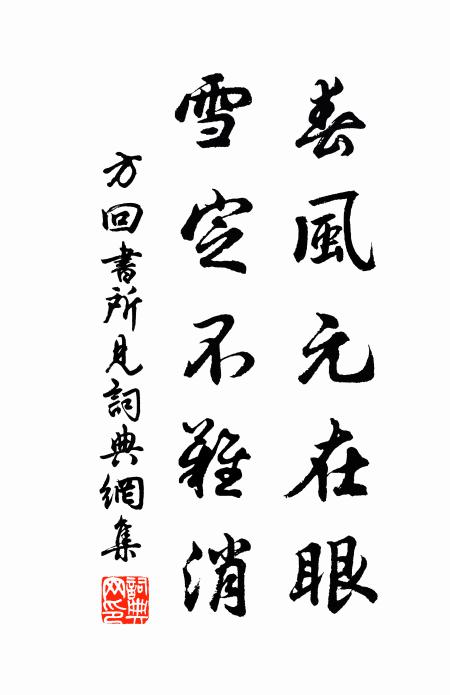 春風元在眼
雪定不難消
方回書所見詞典網集
詞典网印